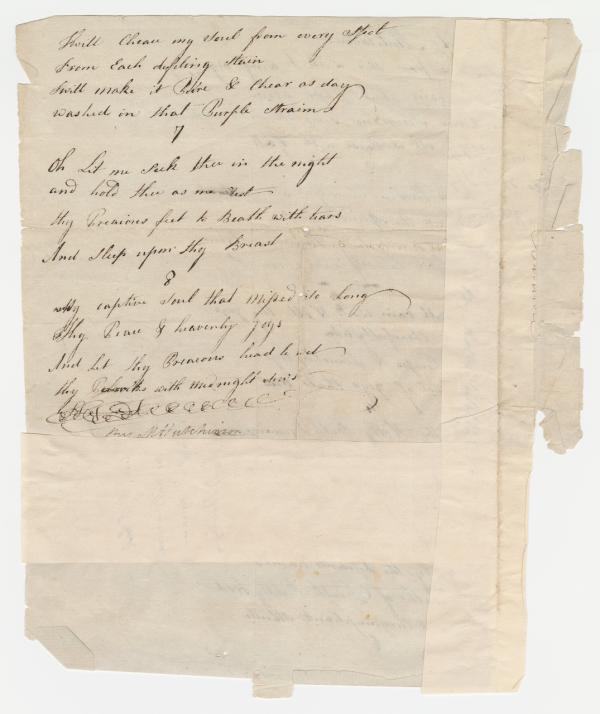 Twill Clean my Soul from every Spot
From Each defiling Stain
Twill make it Pure & Clear as day
washed in that Purple Straim
7
Oh Let me Seek thee in the night
and hold thee as me
thy Preacious feet to Beath with tears
And Sleep upon thy Breast
8
My captive Soul that missed so Long
Thy Peace & heavenly Joys
And Let thy Preacious head be wet
thy with midnight
Hutchinson